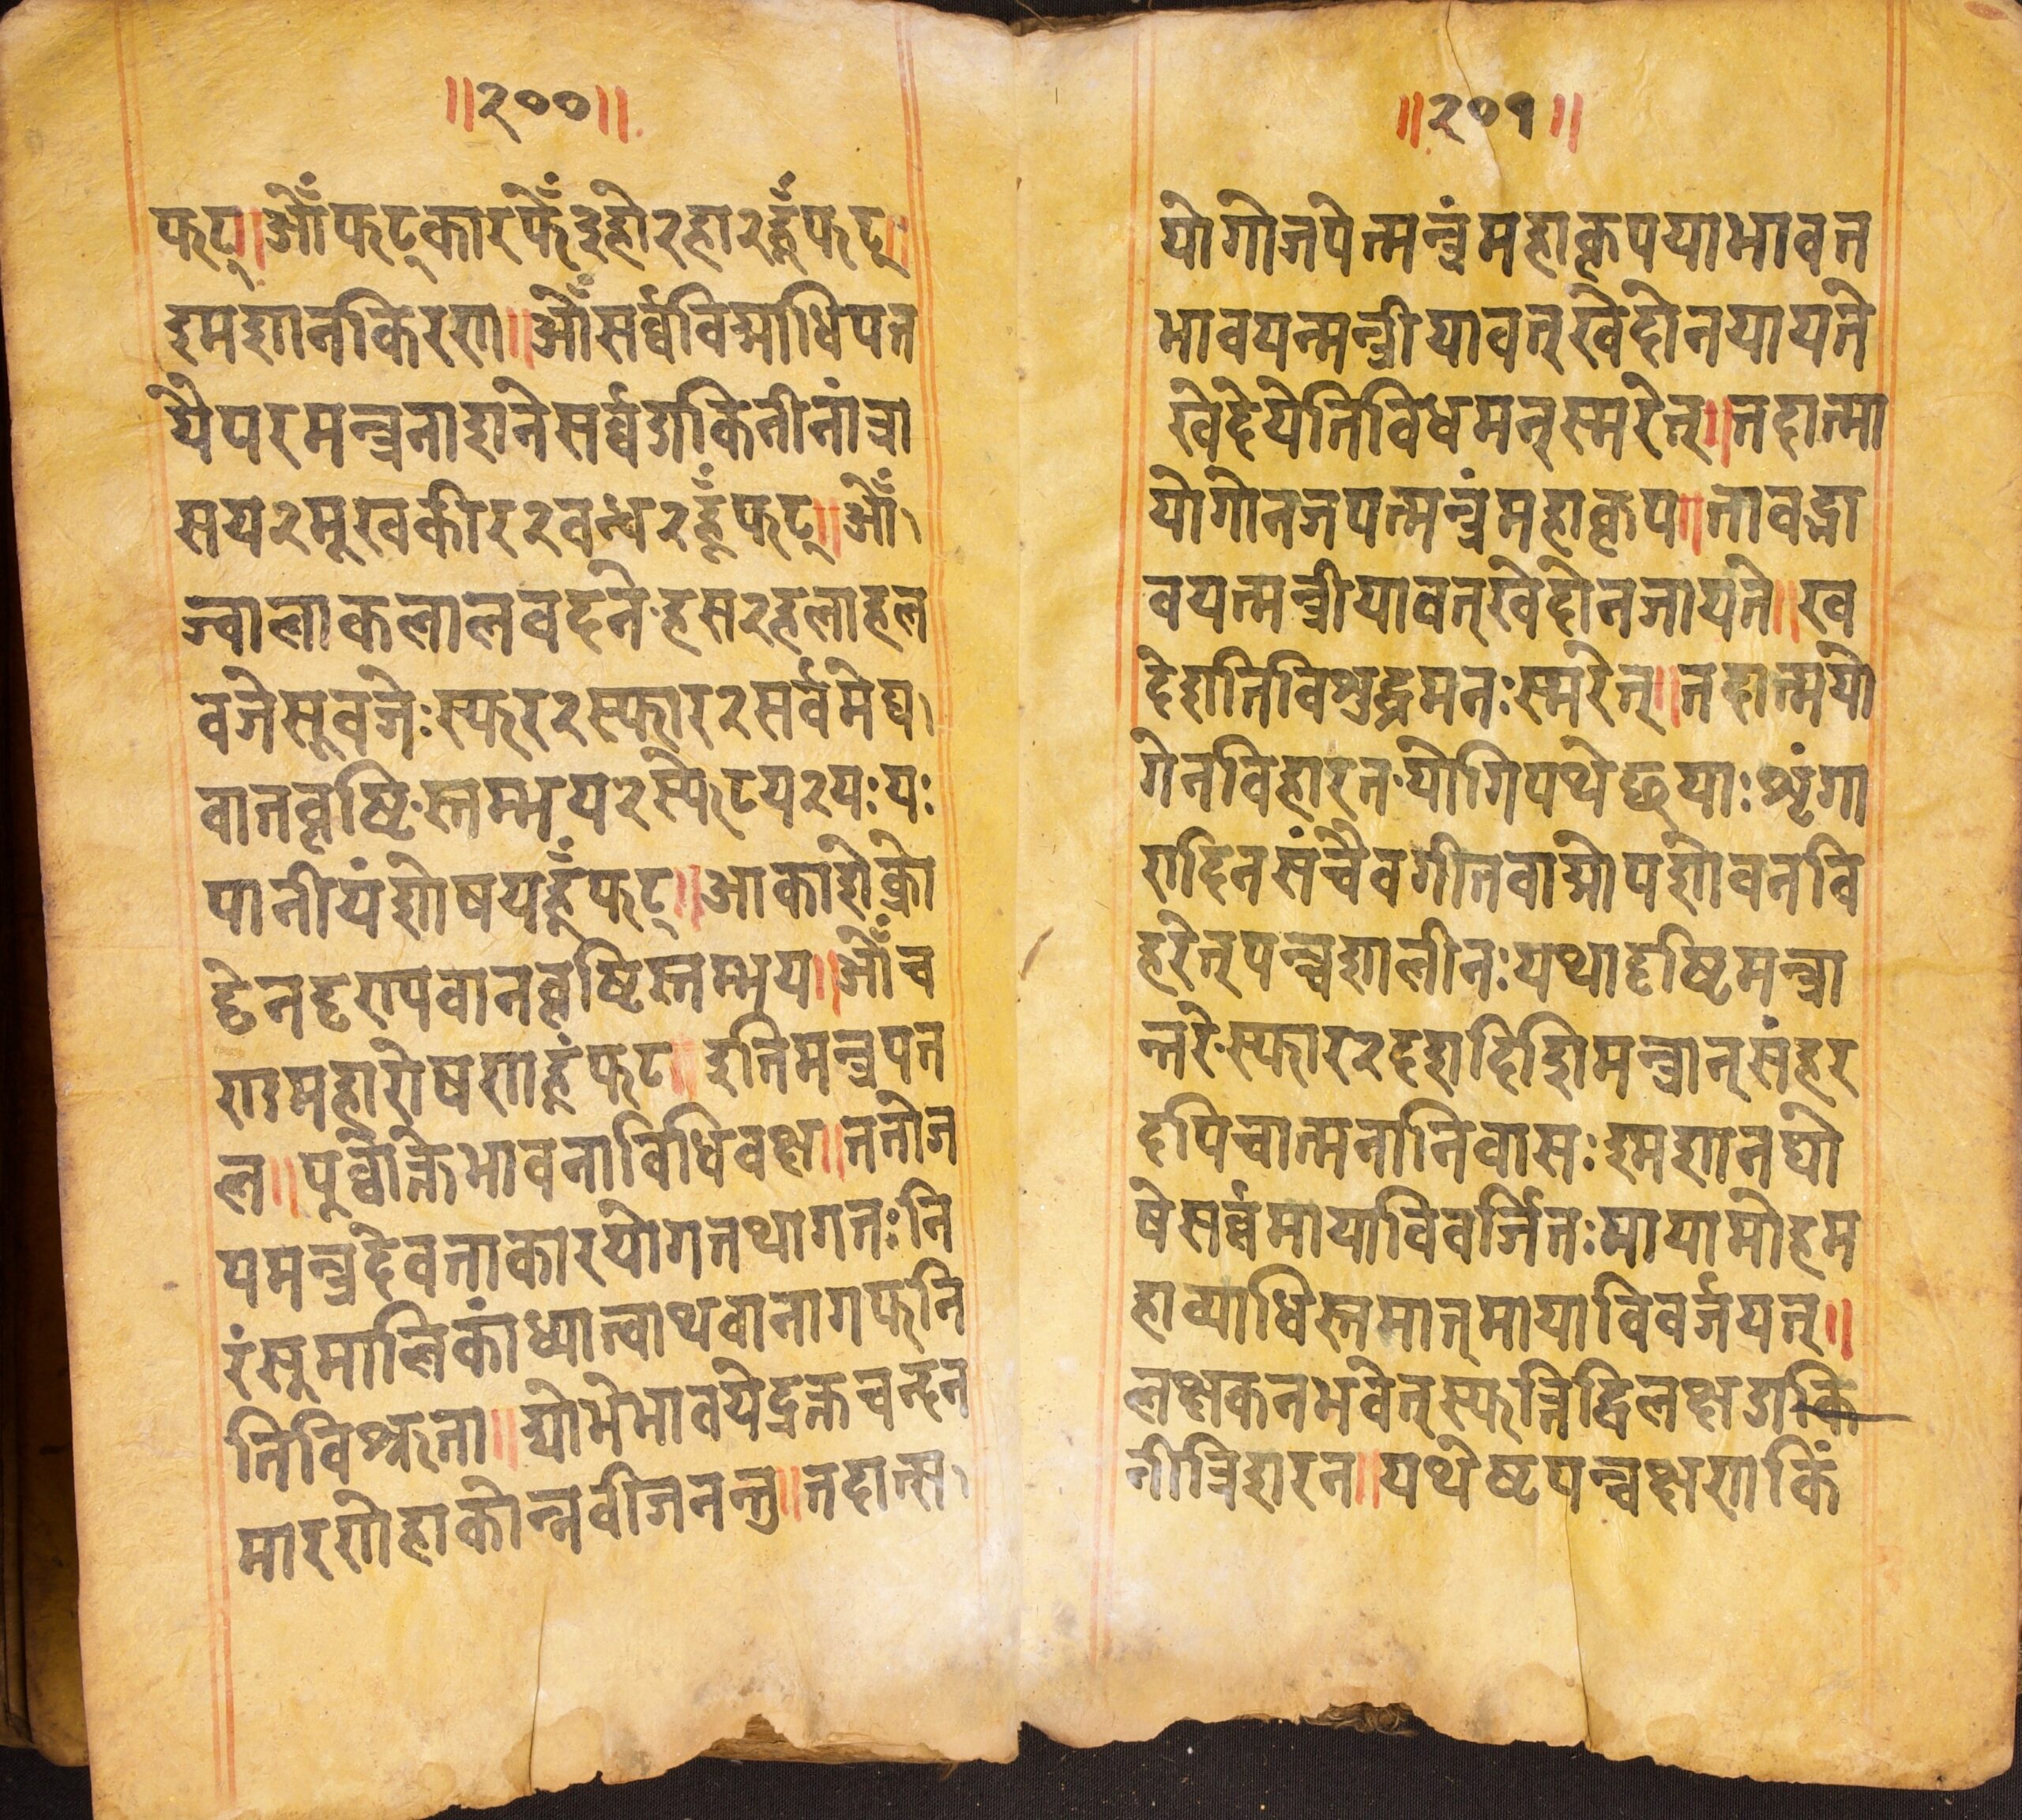 ॥२००॥
फट्॥ओँफट्कारफेँदुहोरहा२हूँफट्॥
इमशानकिरणा॥ओँसर्व्वविद्याधिपत
येपरमन्त्रनाशनेसर्व्वडाकिनीनांत्रा
सय२मूखकीर२बन्ध२हूँफट्॥ओँ
ज्वालाकलालवदनेहस२हलाहल
वज्रेसूवज्रेःस्फर२स्फार२सर्वमेघ
वातवृष्टिस्तम्भय२स्फेटय२यःयः
पानीयंशोषयहूँफट्॥आकांशेक्रो
द्देनदृरापवानवृष्टिस्तम्भय॥ओँच
राामहारोषराहूंफट॥इतिमन्त्रपत
ल॥पुर्व्वोक्तेभावनाविधिवक्ष॥ततोज
पमन्त्रदेवताकारयोगतथागतःनि
रंसूमालिकांध्यात्वाथवानागफनि
तिविश्रुता॥द्योभेभावयेद्रक्तचन्दन
मारराोहाकोन्नवीजनन्तु॥तदात्स
॥२०१॥
योगोजपेत्मन्त्रंमहाकृपयाभावत
भावयन्मन्त्रीयावत्खेदोनयायते
खेदेयेतिविधमनूस्मरेत्॥तदात्मा
योगोनजपत्मन्त्रंमहाकृप॥तावद्भा
वयत्मन्त्रीयावत्खेदोनजायते॥खे
देशातिविशुद्धमनःस्मरेत्॥तदात्मयो
गेनविहारतयोगिपथेछयाःशृंगा
रादिनसंचैवगीतवाद्योपशोवनवि
हरेत्पन्चशालीनःयथादृष्टिमन्त्रा
न्तरेस्फार२दशदिशिमन्त्रान्संहर
दपिचात्मनानिवासःइमशानघो
षेसर्व्वमायाविवर्जितःमायामोहम
हाव्याधिस्तमात्मायाविवर्जयत्॥
लक्षकनभवेत्स्फत्रिद्विलक्षडाकि
नीत्रिशरन॥यथेष्टपन्चक्षराकिं